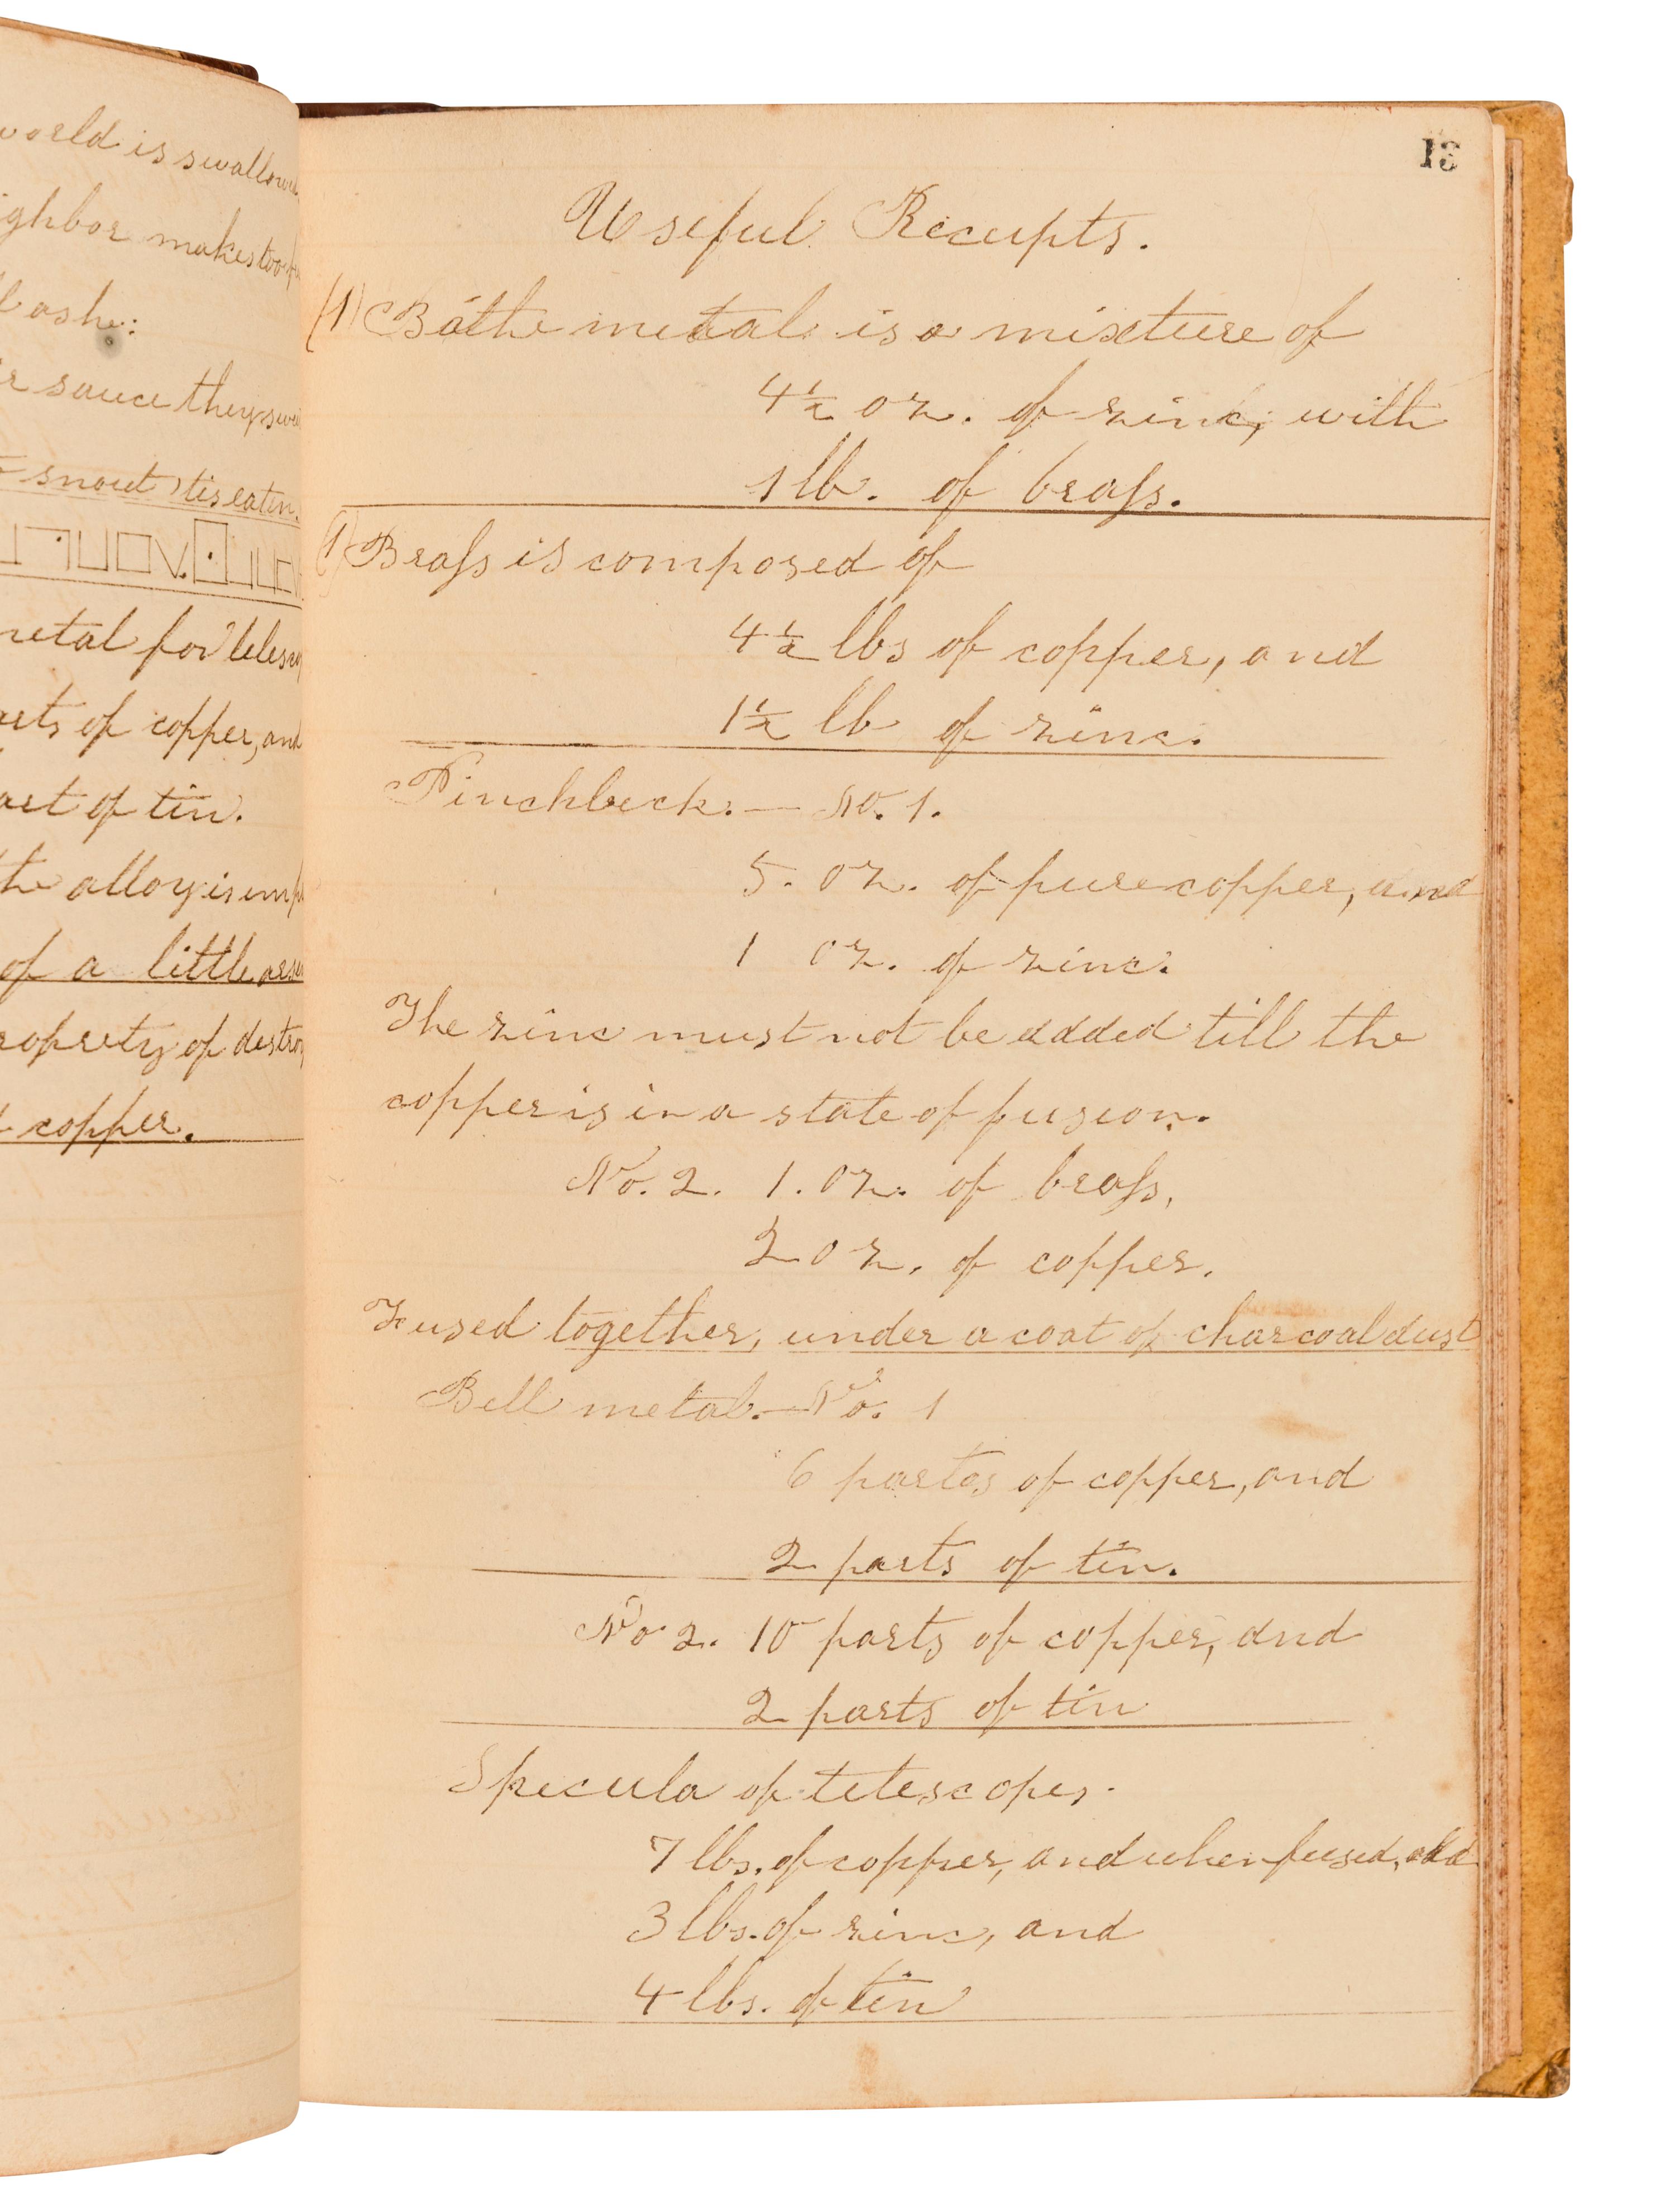 world is swallow
ighbor makes too
l ashe:
r sauce they swe
snout 'tis eaten.
metal for telesco
arts of copper, and
art of tin.
the alloy is imp
of a little arse
roprety of destroy
copper.
13
Useful Reciepts.
(1) Bathe metal is a mixture of
4 1/2 oz. of zinc, with
1 lb. of braſs.
(1) Braſs is composed of
4 1/2 lbs of copper, and
1 1/2 lb of zinc.
Pinchbeck. — No. 1.
5. oz. of pure copper, and
1 oz. of zinc.
The zinc must not be added till the
copper is in a state of fusion.
No. 2. 1. oz. of braſs,
2 oz. of copper.
Fused together, under a coat of charcoal dust
Bell metal. — No. 1
6 partes of copper, and
2 parts of tin.
No 2. 10 parts of copper, and
2 parts of tin
Specula of tetescopes.
7 lbs. of copper, and when fused, add
3 lbs. of zinc, and
4 lbs. of tin